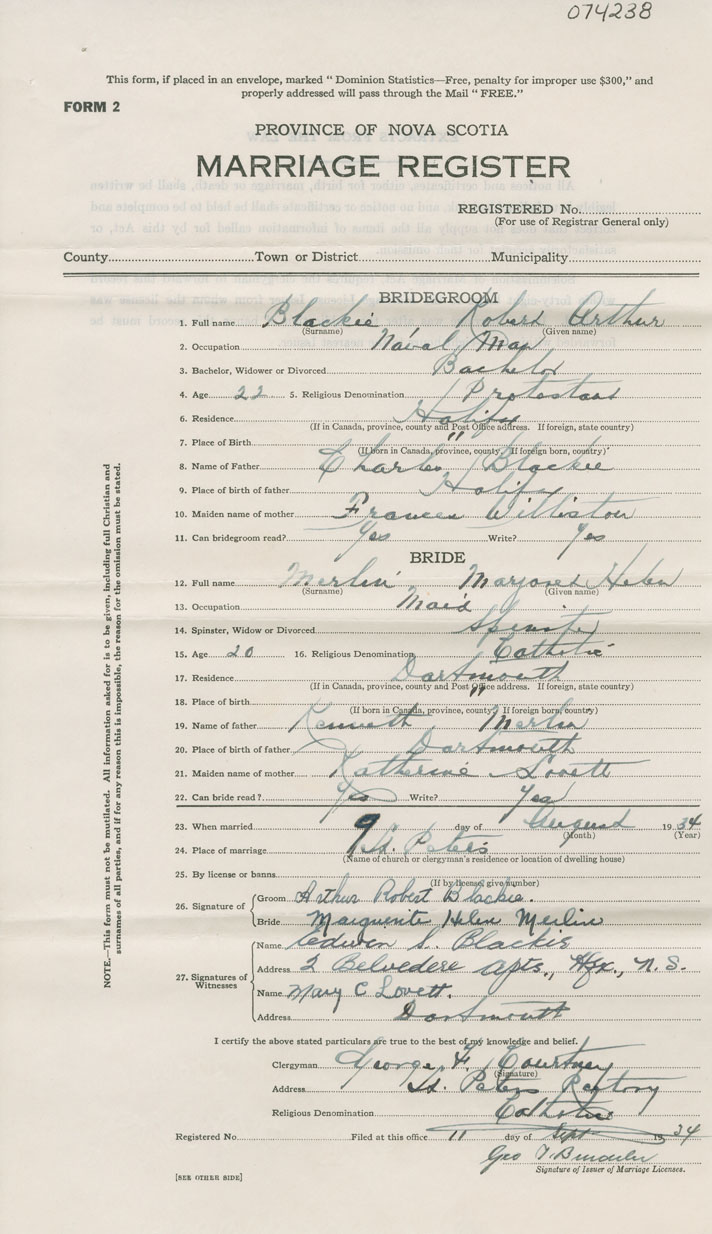 074238
This form, if placed in an envelope, marked "Dominion Statistics—Free, penalty for improper use $300," and
properly addressed will pass through the Mail "FREE."
FORM 2
PROVINCE OF NOVA SCOTIA
MARRIAGE REGISTER
REGISTERED No.
(For use of Registrar General only)
County Town or District Municipality
BRIDEGROOM
1. Full name Blackie Robert Arthur
(Surname) (Given name)
2. Occupation Naval Man
3. Bachelor, Widower or Divorced Bachelor
4. Age 22 5. Religious Denomination Protestant
6. Residence Halifax
(If in Canada, province, county and Post Office address. If foreign, state country)
7. Place of Birth "
(If born in Canada, province, county. If foreign born, country)
8. Name of Father Charles Blackie
9. Place of birth of father Halifax
10. Maiden name of mother Frances Williston
11. Can bridegroom read? Yes Write? Yes
BRIDE
12. Full name Merlin Marjorie Helen
(Surname) (Given name)
13. Occupation Maid
14. Spinster, Widow or Divorced Spinster
15. Age 20 16. Religious Denomination Catholic
17. Residence Dartmouth
(If in Canada, province, county and Post Office address. If foreign, state country)
18. Place of birth "
(If born in Canada, province, county. If foreign born, country)
19. Name of father Kenneth Merlin
20. Place of birth of father Dartmouth
21. Maiden name of mother Katherine Lovett
22. Can bride read? Yes Write? Yes
23. When married 9 day of August 1934
(Month) (Year)
24. Place of marriage St. Peters
(Name of church or clergyman's residence or location of dwelling house)
25. By license or banns
(If by license, give number)
26. Signature of
Groom Arthur Robert Blackie.
Bride Marguerite Helen Merlin
27. Signatures of Witnesses
Name Edwin S. Blackie
Address 2 Belvedere Apts., Hfx., N.S.
Name Mary C Lovett.
Address Dartmouth
I certify the above stated particulars are true to the best of my knowledge and belief.
Clergyman George F. Courtney
(Signature)
Address St. Peters Rectory
Religious Denomination Catholic
Registered No. Filed at this office 11 day of Sept 1934
Geo
Signature of Issuer of Marriage Licenses.
[SEE OTHER SIDE]
NOTE.—This form must not be mutilated. All information asked for is to be given, including full Christian and
surnames of all parties, and if for any reason this is impossible, the reason for the omission must be stated.